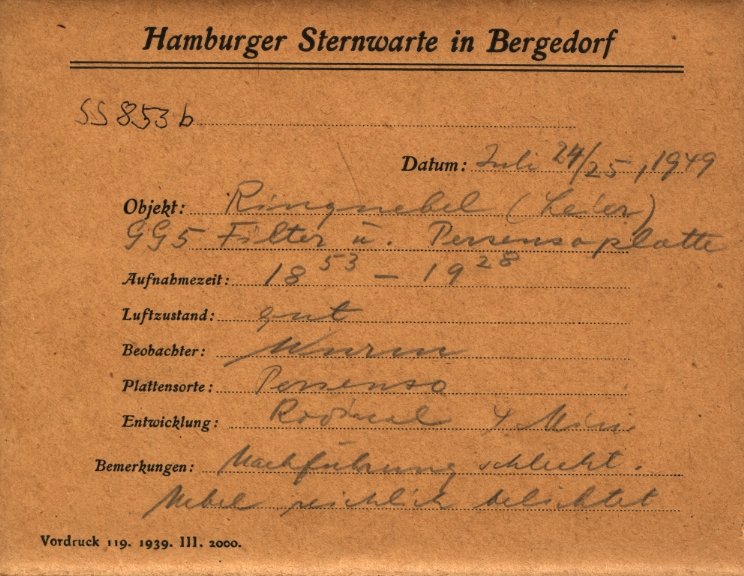 Hamburger Sternwarte in Bergedorf
SS 853 b
Datum: Juli 24/25, 1949
Objekt: Ringnebel (Leier)
GG5 Filter u. Persensoplatte
Aufnahmezeit: 18 53 – 19 28
Luftzustand: gut
Beobachter: Wurm
Plattensorte: Persenso
Entwicklung: Rodinal 4 Min.
Bemerkungen: Nachführung schlecht.
Nebel reichlich belichtet
Vordruck 119. 1939. III. 2000.